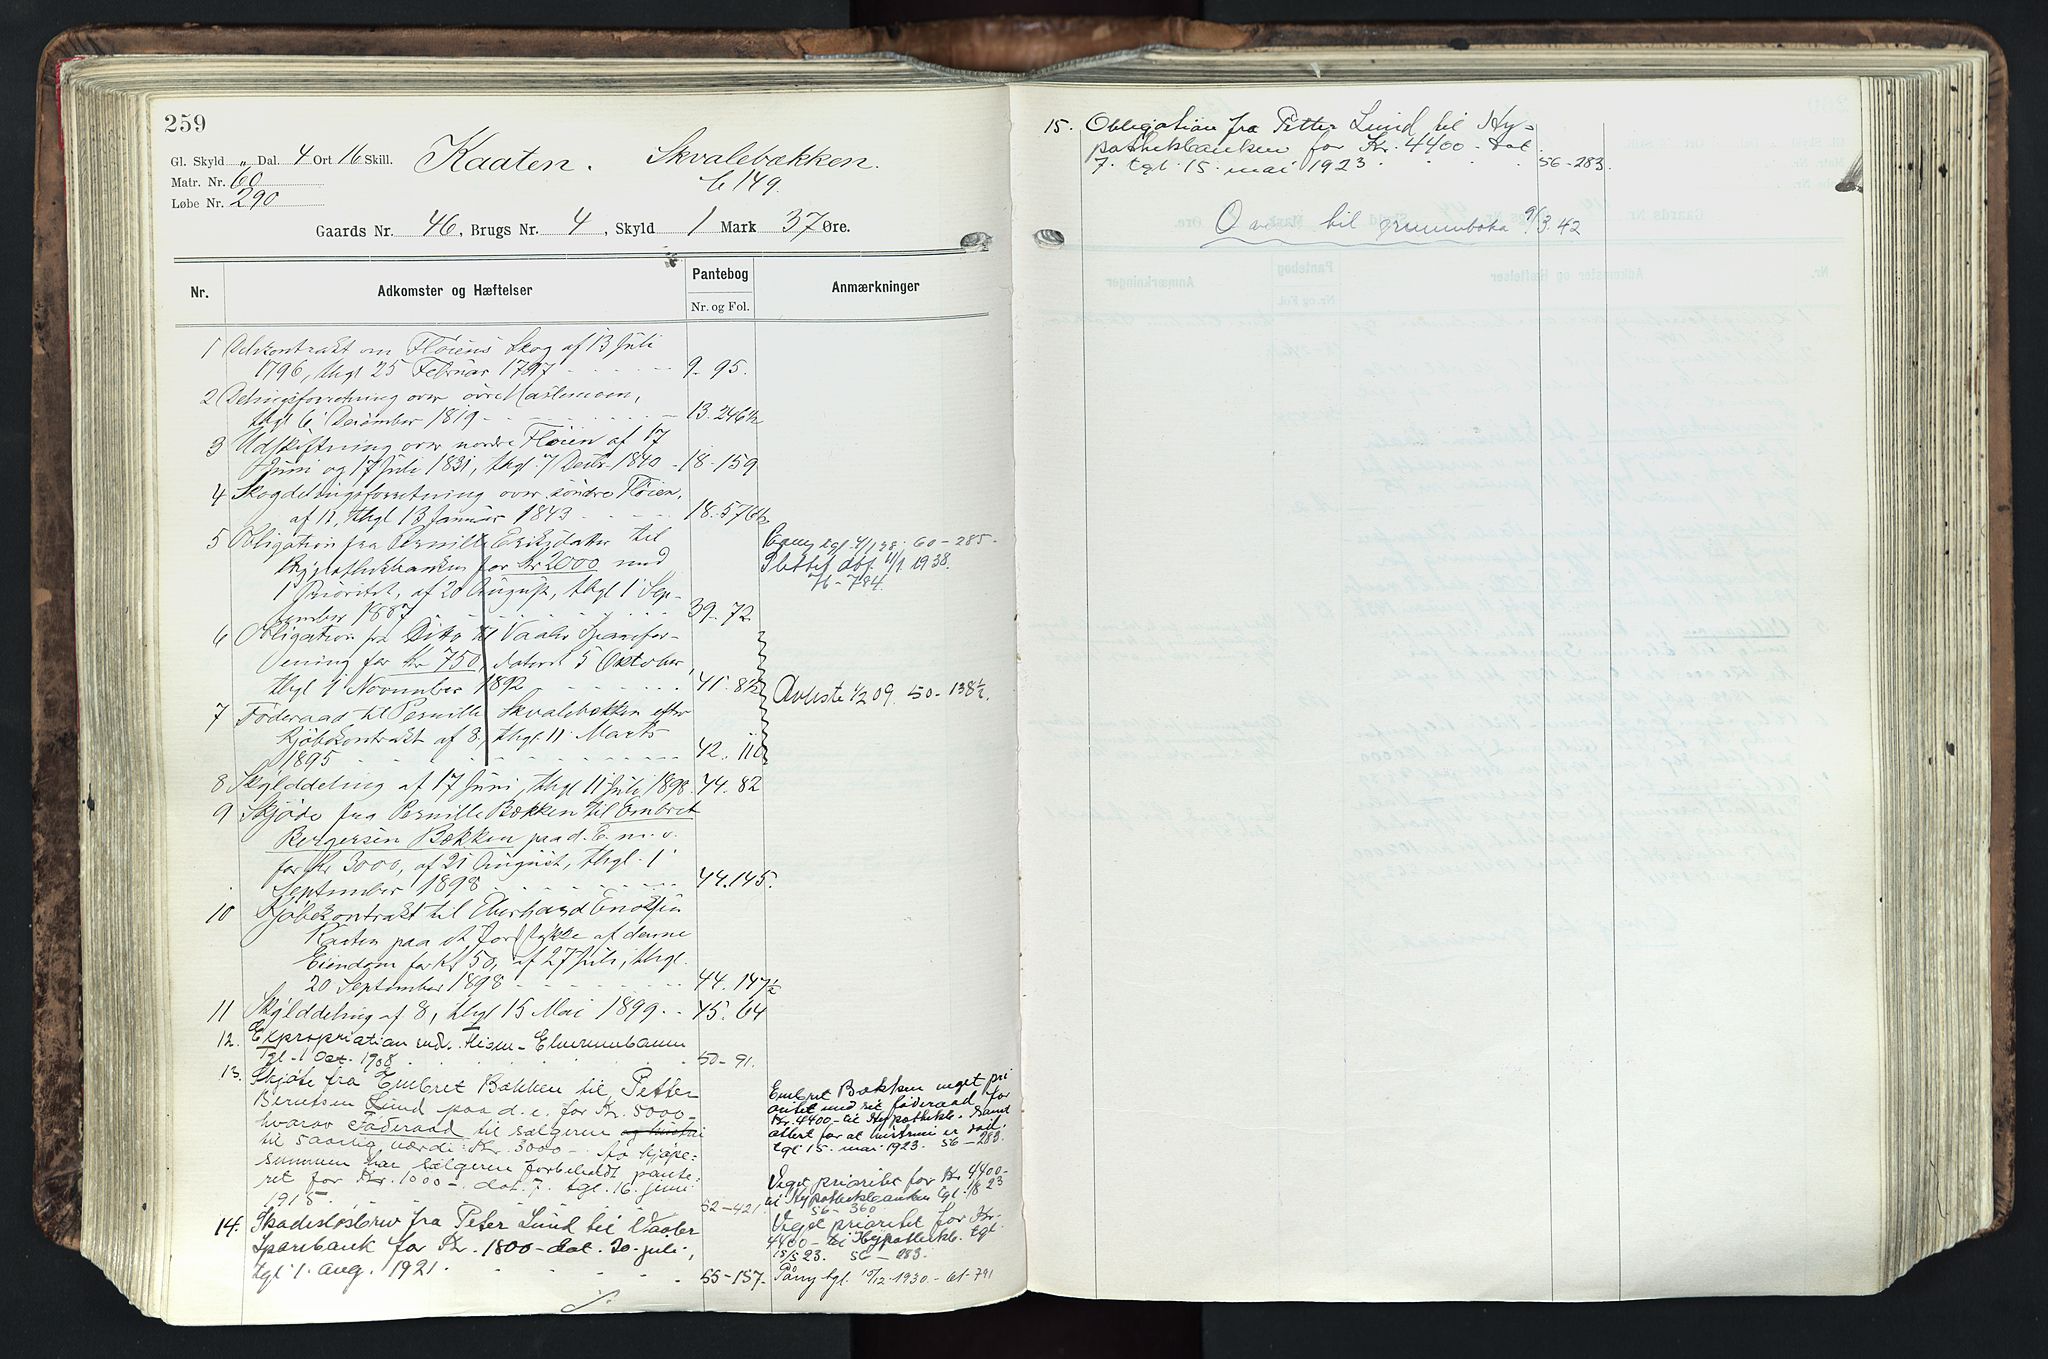 259
Gl. Skyld „ Dal. 4 Ort 16 Skill.
Kaaten. Skvalebækken.
Matr. Nr. 60
b 149.
Løbe Nr. 290
Gaards Nr. 46, Brugs Nr. 4, Skyld 1 Mark 37 Øre.
Nr. Adkomster og Hæftelser Pantebog Anmærkninger
Nr. og Fol.
1 Delekontrakt om Fløiens Skog af 13 Juli
1796, thgl 25 Februar 1797 9. 95.
2 Delingsforretning over øvre Hastemoen,
thgl 6 Desember 1819 13. 246½
3 Udskiftning over nordre Fløien af 17
Juni og 17 Juli 1831, thgl. 7 Decbr. 1840 18. 159
4 Skogdelingsforretning over søndre Fløien,
af 12, thgl 13 Januar 1843 18. 576½
5 Obligation fra Pernille Eriksdatter til
Hypothekbanken for Kr 2000 med
1 Prioritet, af 20 August, thgl 1 Sep-
tember 1887 39. 72
Pany tgl. 4/1 38: 60-285.
Slettet dof. 4/1 1938.
76-784.
6 Obligation fra Ditto til Vaaler Sparefor-
ening for Kr 750, dateret 5 Oktober,
thgl 1 November 1892 41. 8½
7 Føderaad til Pernille Skvalebækken efter
Kjøbekontrakt af 8, thgl. 11 Marts
1895 42. 110
Avleste ½ 09. 50-138½.
8 Skylddeling af 17 Juni, thgl 11 Juli 1898. 44. 82
9 Skjøde fra Pernille Bækken til Embret
Bergersen Bækken paa d. E. m. v.
for Kr 3000, af 21 August, thgl. 1
September 1898 44. 145.
10 Kjøbekontrakt til Eberhard Enoksen
Kaaten paa et Jordstykke af denne
Eiendom for Kr 50, af 27 Juli, thgl.
20 September 1898 44. 147½
11 Skylddeling af 8, thgl 15 Mai 1899. 45. 64
12. Expropriation vedk. Risen-Elverumbanen
tgl. 1 Oct. 1908 50-91.
13. Skjøte fra Embret Bækken til Petter
Berntsen Lund paa d. e. for Kr. 5000-
hvorav Føderaad til sælgeren
til 5aarlig værdi Kr. 3000-. fo Kjøpe-
summen har sælgeren forbeholdt pante-
ret for Kr. 1000-. dat. 7. tgl. 16. juni
1915 52-421.
Embret Bækken veget pri
oritet med sit føderaad for
Kr. 4400- til Hypothekb. Samt
attert for at hustruen er død.
tgl 15. mai 1923. 56-283.
Veget prioritet for Kr. 4400-
til Hypothekbanken tgl. 1/8 23
56-360
14. Skadesløsbrev fra Peter Lund til Vaaler
Sparebank for Kr. 1800- dat. 30. juli,
tgl 1. aug. 1921. 55-157.
Veget prioritet for Kr.
4400- til Hypothekb. tgl
15/5 23. 56-283.
Pany tgl. 15/12 1930.- 61-791
15. Obligation fra Petter Lund til Hy-
pothekbanken for Kr. 4400- dat.
7. tgl 15. mai 1923 56-283.
Over til grunnboka 9/3.42